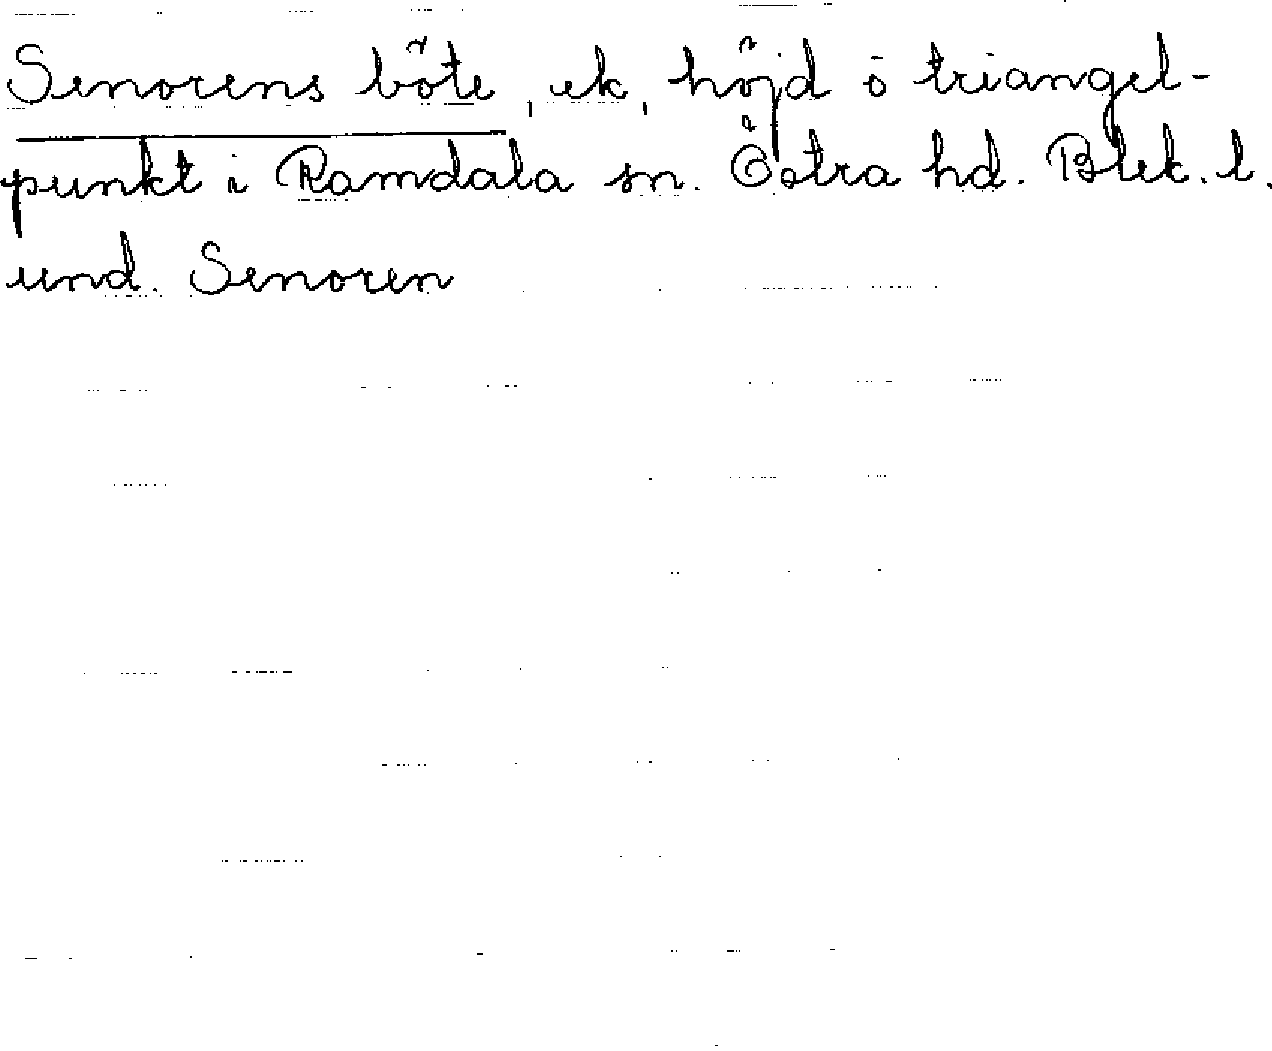 Senorens böte, ek, höjd o triangel-
punkt i Ramdala sn. Östra hd. Blek. l.
und. Senoren